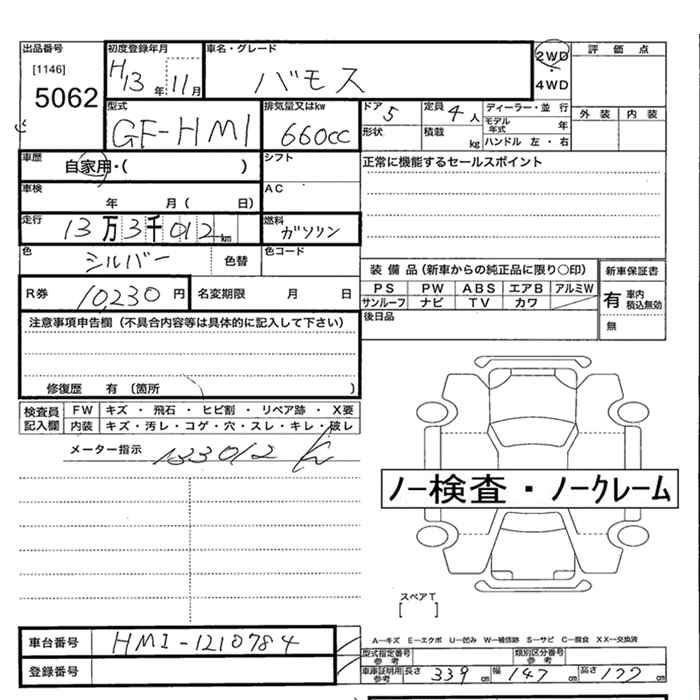 出品番号 初度登録年月 車名・グレード 2WD 評価点
[1146] H13年11月 バモス ・
5062 4WD
型式 排気量又はkw ドア 5 定員 4人 ディーラー・並行 外装 内装
GF-HM1 660cc 形状 積載 kg モデル年式 年
ハンドル 左・右
車歴 自家用・( ) シフト 正常に機能するセールスポイント
車検 年 月( 日) AC
走行 13万3千012km 燃料 ガソリン
色 シルバー 色替 色コード
装備品(新車からの純正品に限り○印) 新車保証書
R券 10,230円 名変期限 月 日 PS PW ABS エアB アルミW 有 車内積込無効
サンルーフ ナビ TV カワ
注意事項申告欄(不具合内容等は具体的に記入して下さい) 後日品 無
修復歴 有 (箇所 )
検査員記入欄 FW キズ・飛石・ヒビ割・リペア跡・X要
内装 キズ・汚レ・コゲ・穴・スレ・キレ・破レ
メーター指示 133012
ノー検査・ノークレーム
スペアT
[ ]
車台番号 HM1-1210784 A―キズ E―エクボ U―凹み W―補修跡 S―サビ C―腐食 XX―交換済
型式指定番号 参考 類別区分番号 参考
登録番号 車庫証明用参考 長さ 339cm 幅 147cm 高さ 177cm